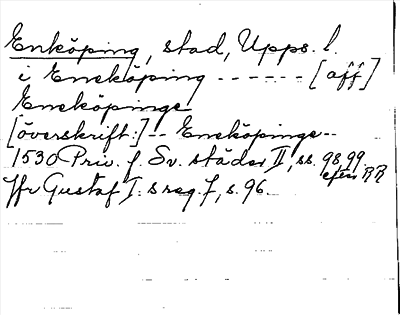 Enköping, stad, Upps. l.
i Eneköping ------ [aff]
Eneköpinge
[överskrift:] -- Eneköpinge --
1530 Priv. f. Sv. städer II, ss. 98, 99.
efter RR
Jfr Gustaf I:s reg. 7, s. 96.